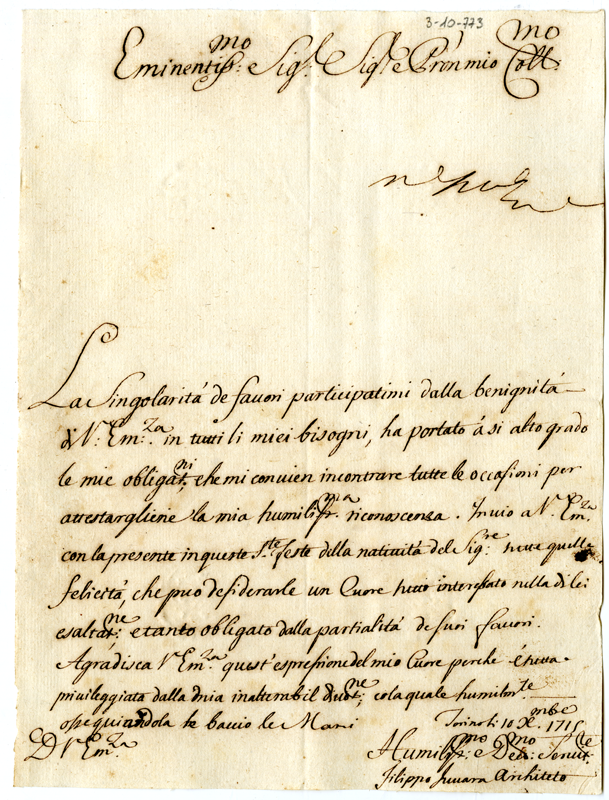 3-10-773
Eminentiss:mo e Sig:r Sig:r e Pron mio Coll:mo
La Singolaritá de favori participatimi dalla benignitá
di V: Em:za in tutti li miei bisogni, ha portato á si alto grado
le mie obligat:ni, che mi convien incontrare tutte le occasioni per
attestargliene la mia humiliss:ma riconoscensa. Invio a V: Em:za
con la presente in queste S:te feste della nativitá del Sig:re tutta quella
felicitá, che puo desiderarle un Cuore tutto interessato nella di lei
esaltat:ne, e tanto obligato dalla partialitá de suoi favori.
Agradisca V: Em:za quest'espressione del mio Cuore perche é tutta
privileggiata dalla mia inalterabil divot:ne, cola quale humilm:te
ossequiandola le baccio le Mani
D V: Em:za Torino li 10 X:mbre 1715
Humiliss:mo e Dev:mo Servit:e
Filippo Juvara Architeto